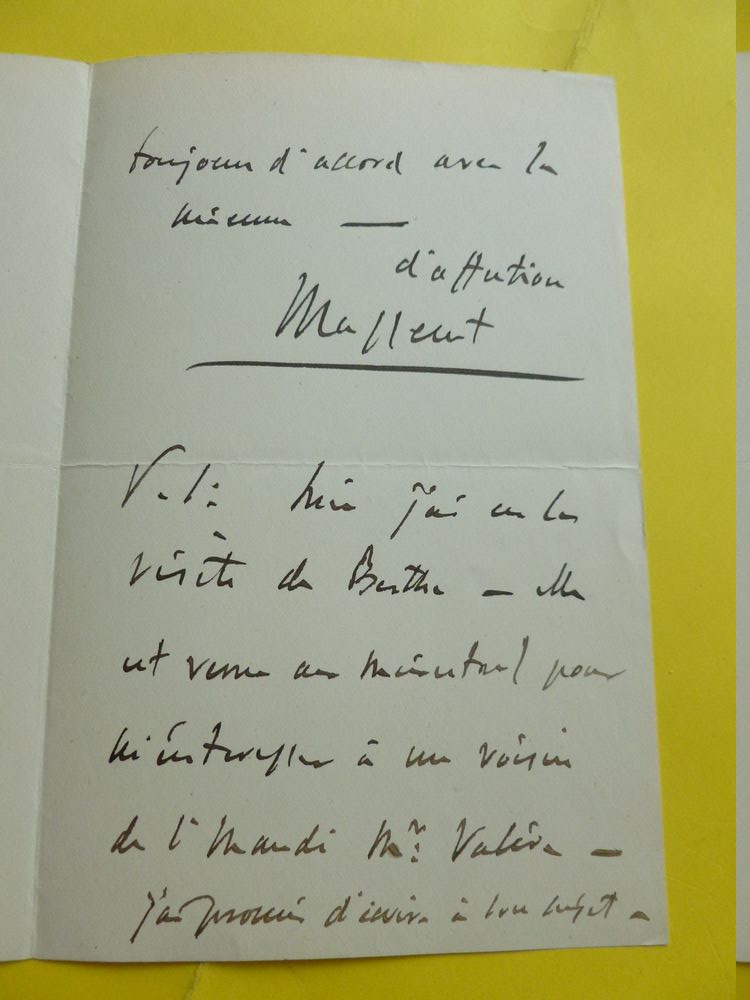 toujours d'accord avec la
mienne —
d'affection
Massenet
hier j'ai eu la
visite de Berthe — elle
est venue au ménestrel pour
m'intéresser à un voisin
de l' Mr. Valéra —
j'ai promis d'écrire à son sujet —